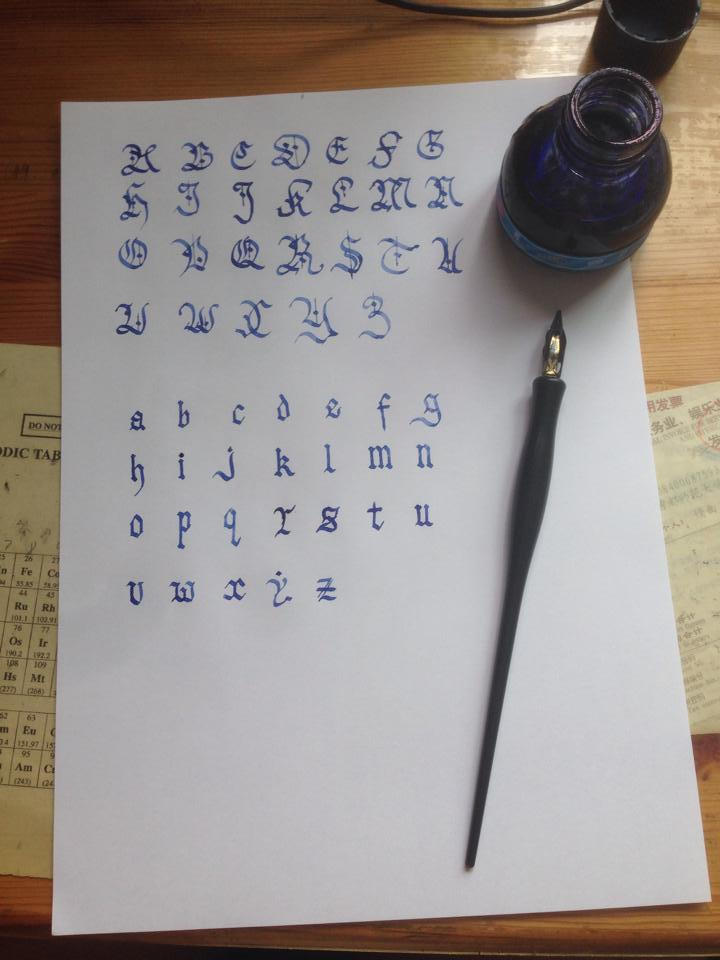 A B C D E F G
H I J K L M N
O P Q R S T U
V W X Y Z
a b c d e f g
h i j k l m n
o p q r s t u
v w x y z
DO NOT
ODIC TAB
25 26 27
n Fe Co
55.85
44 45
Ru Rh
101.1 102.91
76 77
Os Ir
190.2 192.2
108 109
Hs Mt
(277) (268)
62 63
m Eu
151.97
95
Am
(243)
用发票
务业、娱乐业